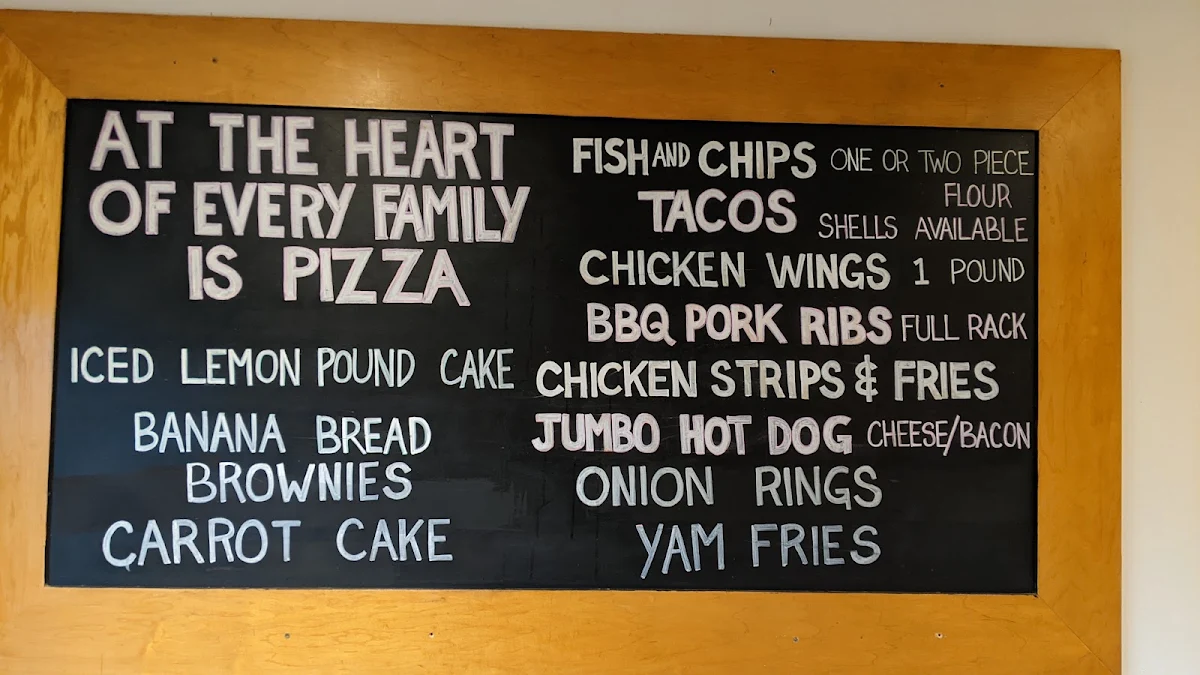 AT THE HEART
OF EVERY FAMILY
IS PIZZA
ICED LEMON POUND CAKE
BANANA BREAD
BROWNIES
CARROT CAKE
FISH AND CHIPS ONE OR TWO PIECE
TACOS FLOUR
SHELLS AVAILABLE
CHICKEN WINGS 1 POUND
BBQ PORK RIBS FULL RACK
CHICKEN STRIPS & FRIES
JUMBO HOT DOG CHEESE/BACON
ONION RINGS
YAM FRIES